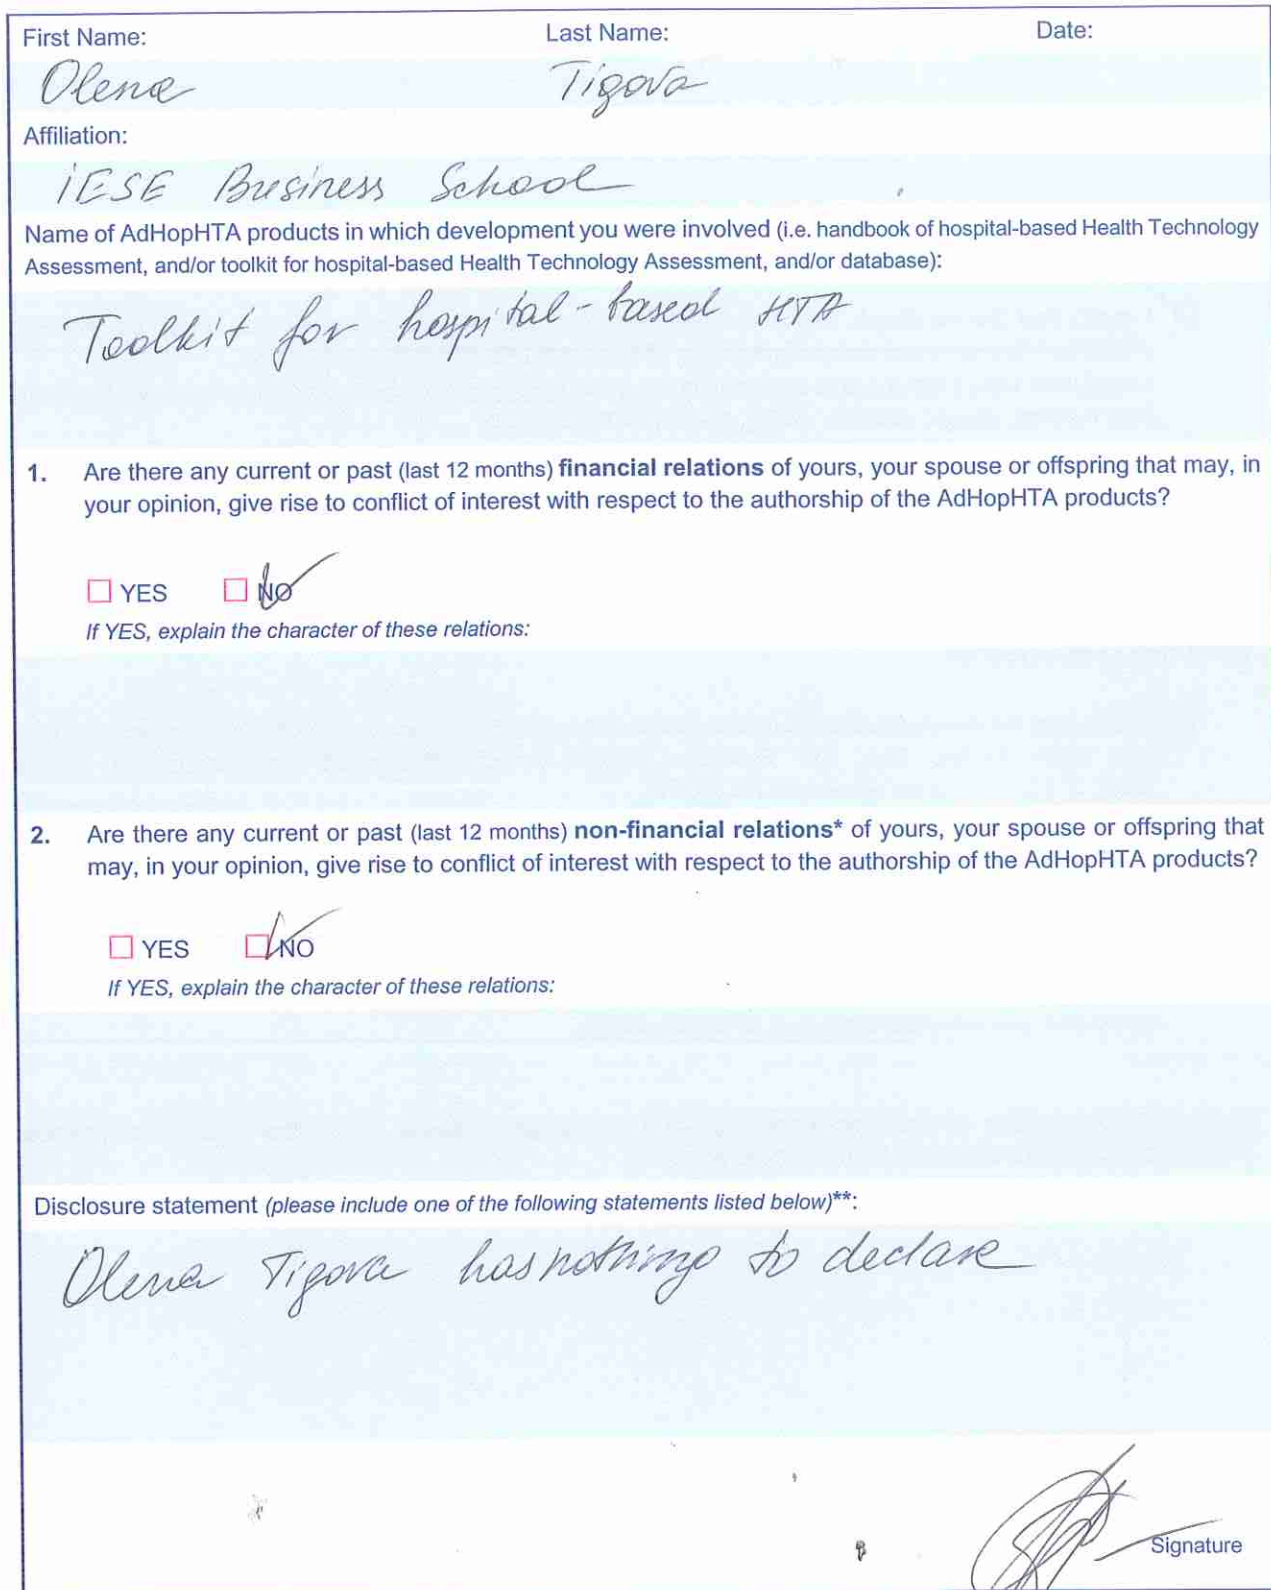 First Name: Last Name: Date:
Olena Tigova
Affiliation:
iESE Business School
Name of AdHopHTA products in which development you were involved (i.e. handbook of hospital-based Health Technology
Assessment, and/or toolkit for hospital-based Health Technology Assessment, and/or database):
Toolkit for hospital-based HTA
1. Are there any current or past (last 12 months) financial relations of yours, your spouse or offspring that may, in
your opinion, give rise to conflict of interest with respect to the authorship of the AdHopHTA products?
☐ YES ☐ NO
If YES, explain the character of these relations:
2. Are there any current or past (last 12 months) non-financial relations* of yours, your spouse or offspring that
may, in your opinion, give rise to conflict of interest with respect to the authorship of the AdHopHTA products?
☐ YES ☐ NO
If YES, explain the character of these relations:
Disclosure statement (please include one of the following statements listed below)**:
Olena Tigova has nothing to declare
Signature